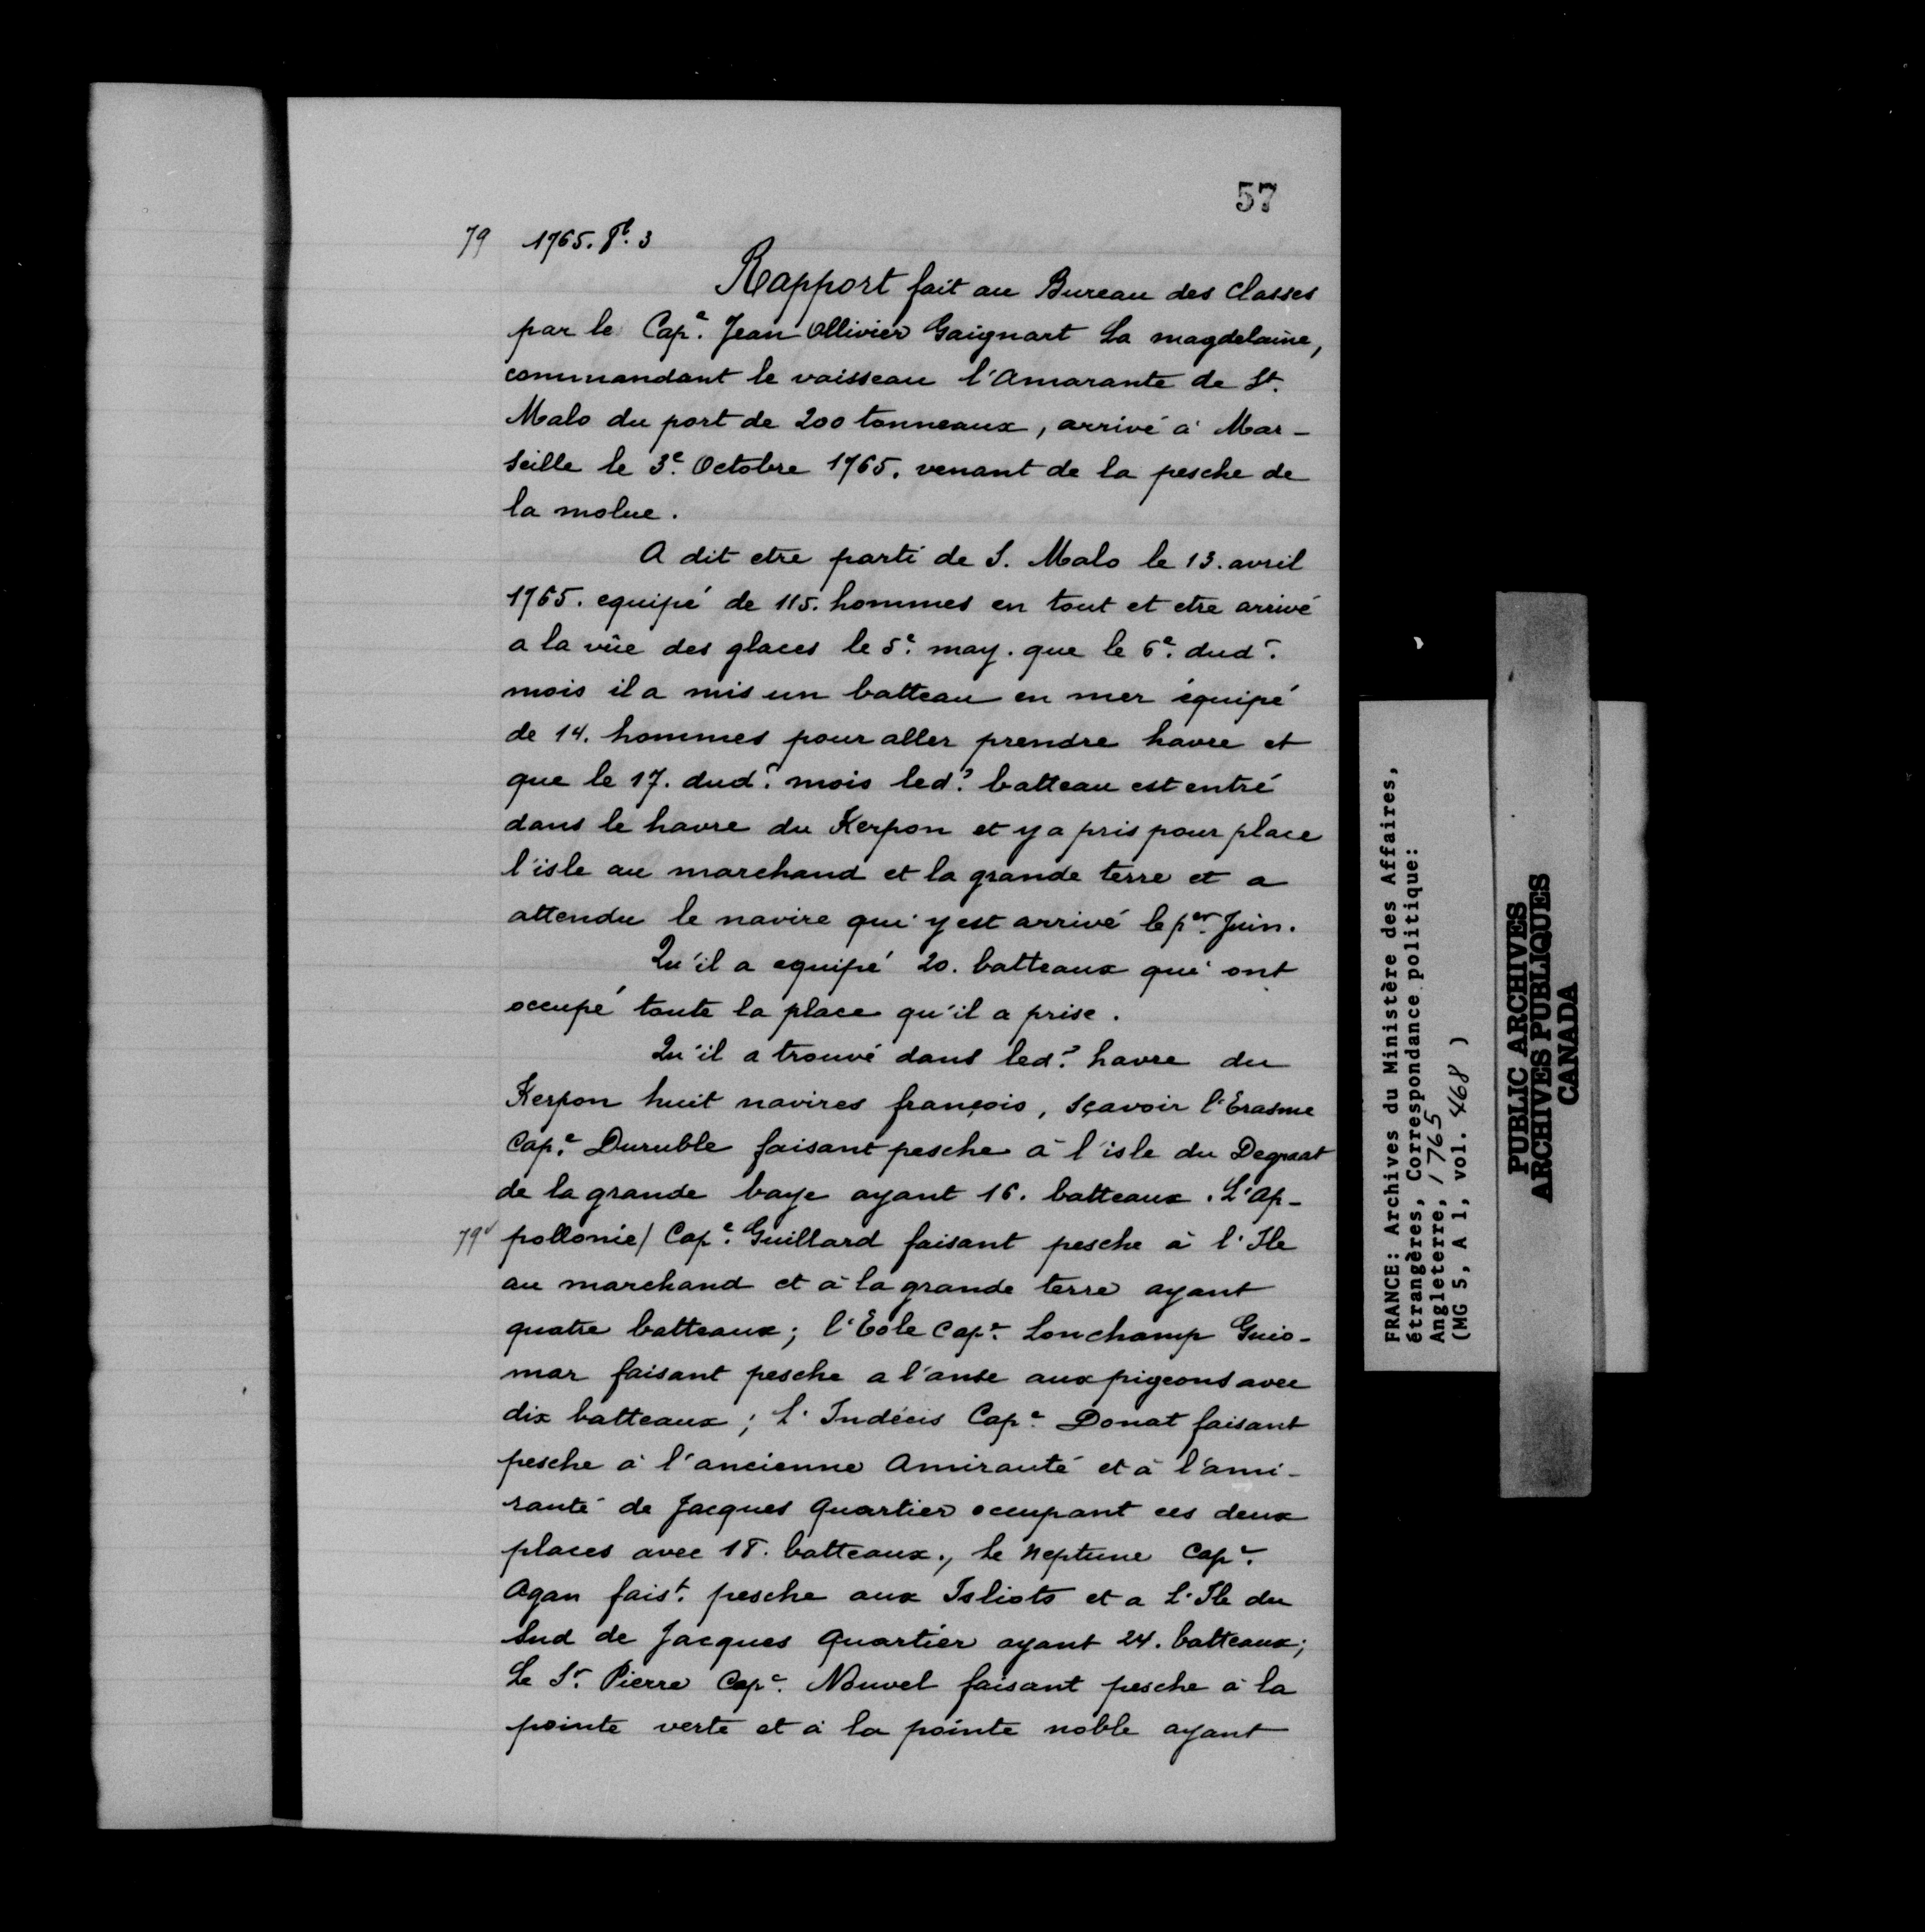 57
79 1765. 8b. 3
Rapport fait au Bureau des Classes
par le Cape. Jean Ollivier Gaignart La magdelaine,
commandant le vaisseau l'Amarante de St.
Malo du port de 200 tonneaux, arrivé à Mar-
seille le 3e. Octobre 1765. venant de la pesche de
la molue.
A dit etre parti de S. Malo le 13. avril
1765. equipé de 115. hommes en tout et etre arrivé
a la vûe des glaces le 5e. may. que le 6e. dudt.
mois il a mis un batteau en mer équipé
de 14. hommes pour aller prendre havre et
que le 17. dudt. mois ledt. batteau est entré
dans le havre du Kerpon et y a pris pour place
l'isle au marchand et la grande terre et a
attendu le navire qui y est arrivé le per. Juin.
Qu'il a equipé 20. batteaux qui ont
occupé toute la place qu'il a prise.
Qu'il a trouvé dans ledt. havre du
Kerpon huit navires françois, sçavoir l'Erasme
Cape. Duruble faisant pesche à l'isle du Degraat
de la grande baye ayant 16. batteaux. L'Ap-
79v pollonie/ Cape. Guillard faisant pesche à l'Ile
au marchand et à la grande terre ayant
quatre batteaux; l'Eole Cape. Lonchamp Guio-
mar faisant pesche a l'anse aux pigeons avec
dix batteaux; L'Indécis Cape. Donat faisant
pesche à l'ancienne Amirauté et à l'ami-
rauté de Jacques Quartier occupant ces deux
places avec 18. batteaux., le Neptune Cape.
Agan faist. pesche aux Isliots et a L'Ile du
Sud de Jacques Quartier ayant 24. batteaux;
Le St. Pierre Cape. Nouvel faisant pesche à la
pointe verte et à la pointe noble ayant
FRANCE: Archives du Ministère des Affaires,
étrangères, Correspondance politique:
Angleterre, 1765
(MG 5, A 1, vol. 468 )
PUBLIC ARCHIVES
ARCHIVES PUBLIQUES
CANADA